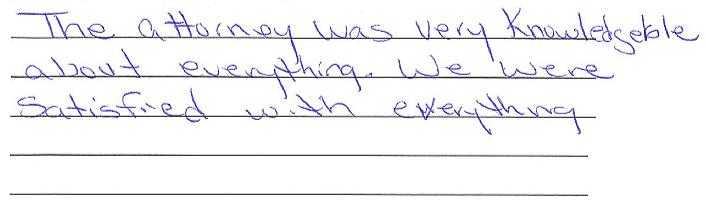 The attorney was very knowledgeble
about everything. We were
Satisfied with everything